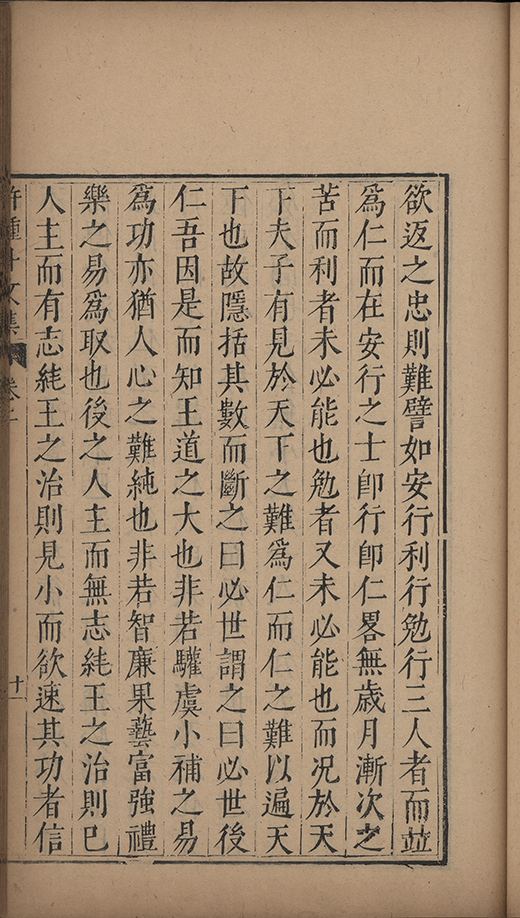 欲返之忠則難譬如安行利行勉行三人者而竝
爲仁而在安行之士卽行卽仁畧無歲月漸次之
苦而利者未必能也勉者又未必能也而况於天
下夫子有見於天下之難爲仁而仁之難以遍天
下也故隱括其數而斷之曰必世謂之曰必世後
仁吾因是而知王道之大也非若驩虞小補之易
爲功亦猶人心之難純也非若智廉果藝富強禮
樂之易爲取也後之人主而無志純王之治則已
人主而有志純王之治則見小而欲速其功者信
許鍾斗文集 卷二 十一